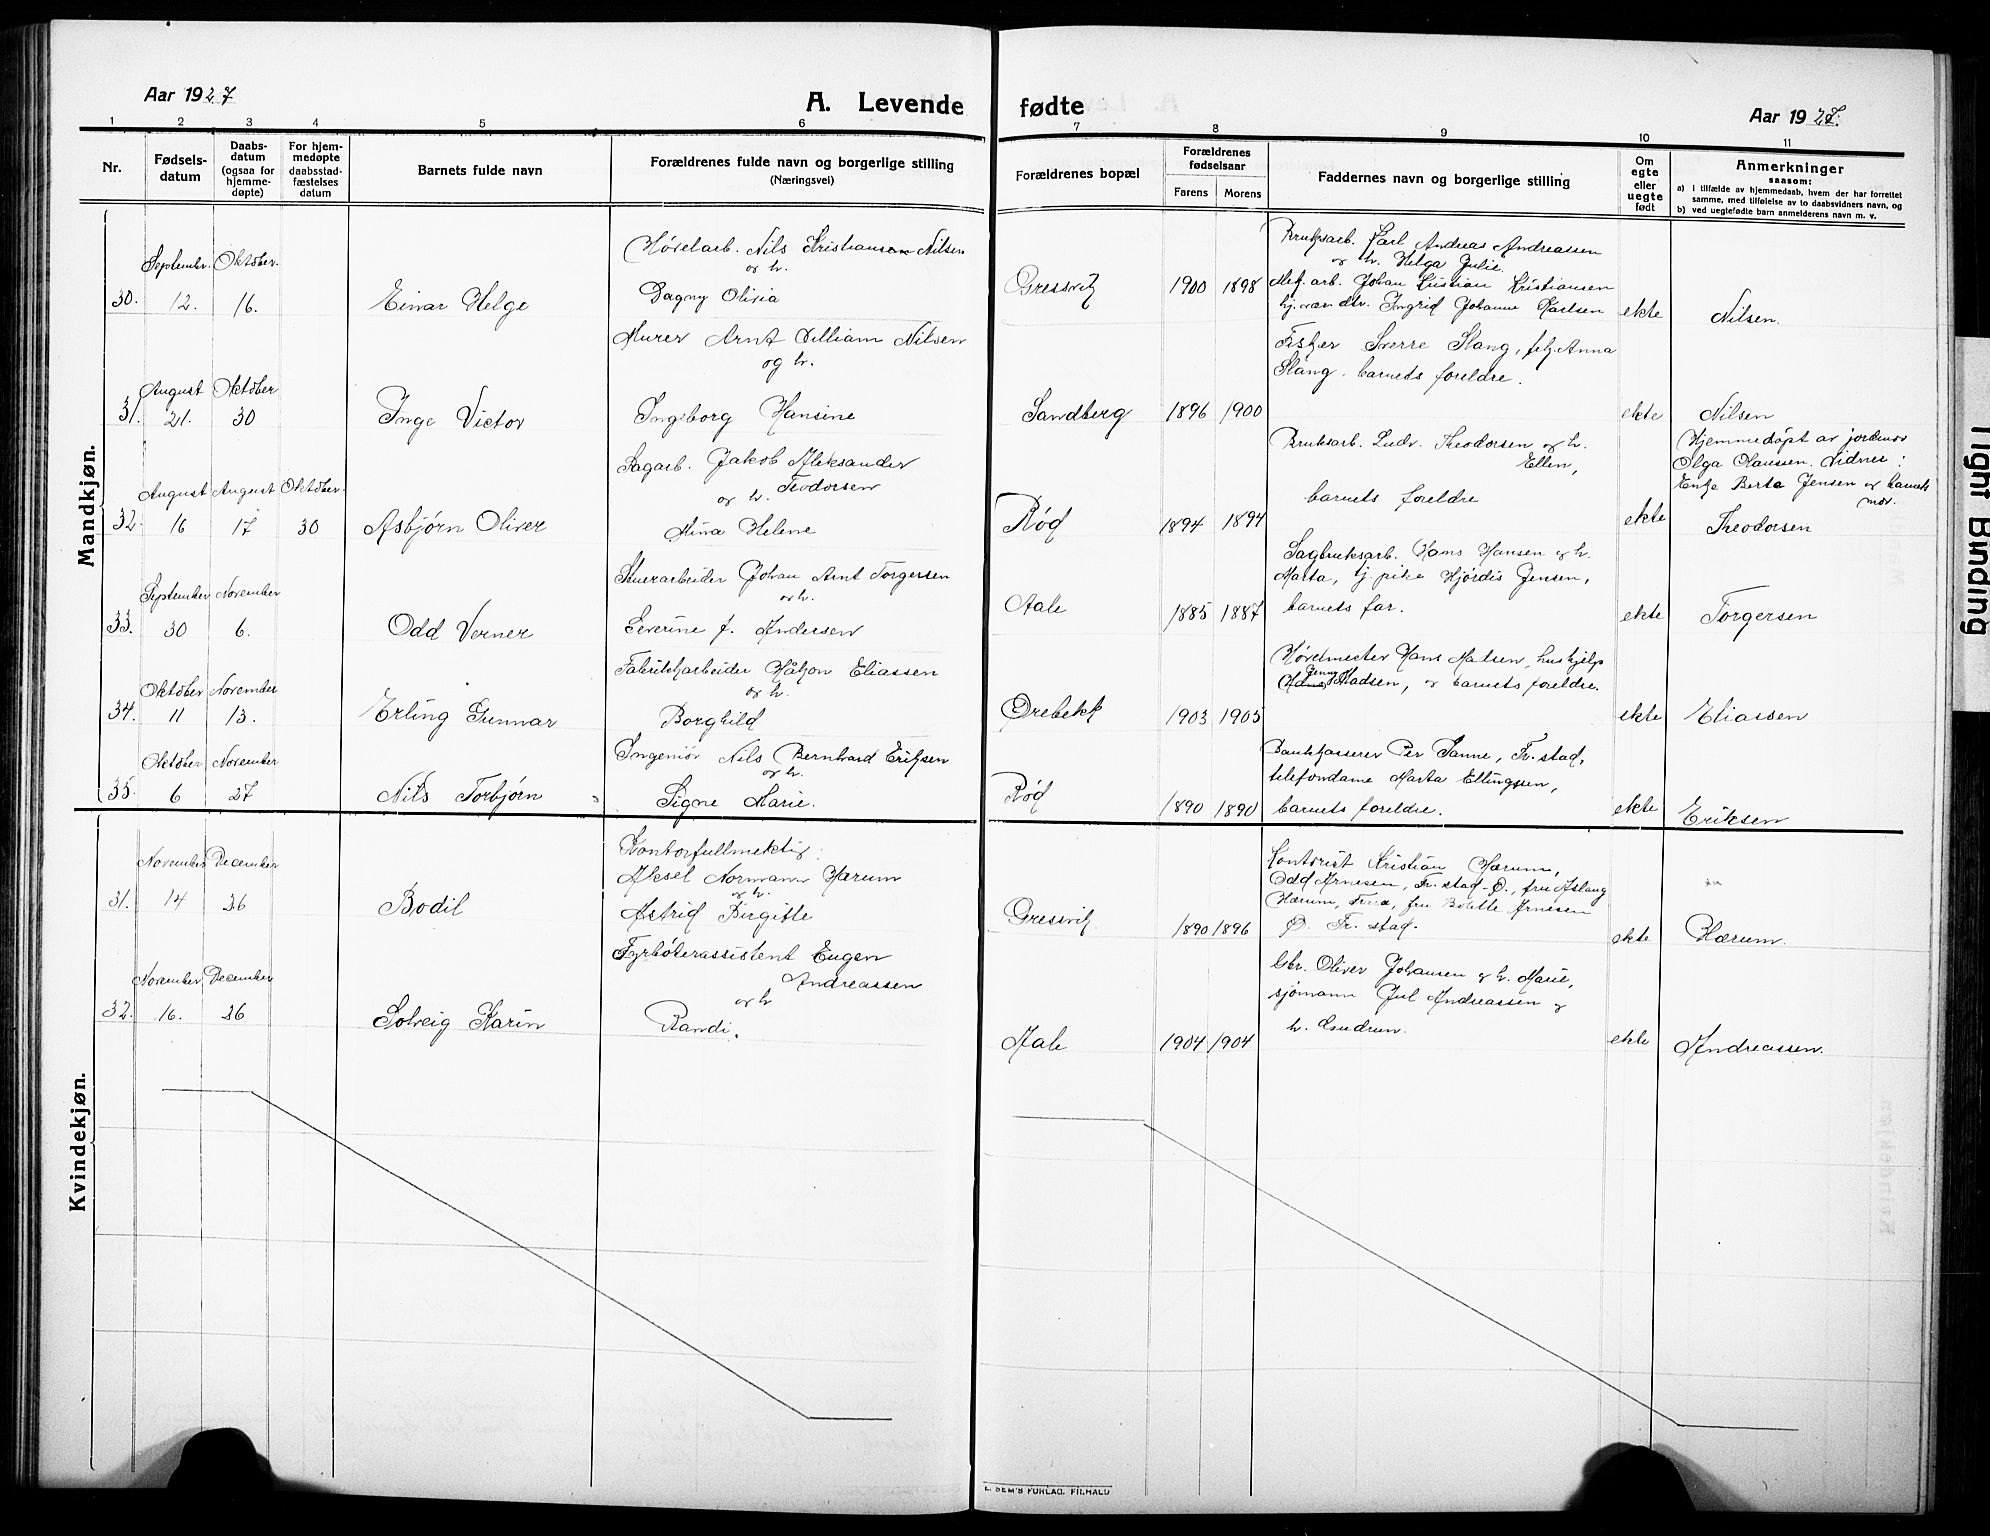 Aar 1927
A. Levende fødte
Aar 1927.
1 2 3 4 5 6 7 8 9 10 11
Nr.
Fødsels-
datum
Daabs-
datum
(ogsaa for
hjemme-
døpte)
For hjem-
medøpte
daabsstad-
fæstelses
datum
Barnets fulde navn
Forældrenes fulde navn og borgerlige stilling
(Næringsvei)
Forældrenes bopæl
Forældrenes
fødselsaar
Farens Morens
Faddernes navn og borgerlige stilling
Om
egte
eller
uegte
født
Anmerkninger
saasom:
a) i tilfælde av hjemmedaab, hvem der har forrettet
samme, med tilføielse av to daabsvidners navn, og
b) ved uegtefødte barn anmelderens navn m. v.
Mandkjøn.
30.
September
12.
Oktober.
16.
Einar Helge
Høvelarb. Nils Kristiansen Nilsen
og h.
Dagny Olivia
Gressvik
1900 1898
Bruksarb. Karl Andreas Andreassen
og h. Helga Julie.
Mek. arb. Johan Kristian Kristiansen
hj. vær. dtr. Ingrid Johanne Karlsen
ekte
Nilsen.
31.
August
21.
Oktober
30
Inge Victor
Murer Arnt Villiam Nilsen
og h.
Ingeborg Hansine
Sandberg
1896 1900
Fisker Sverre Slang, frk. Anna
Slang. barnets foreldre.
ekte
Nilsen
32.
August
16
August
17
Oktober.
30
Asbjørn Oliver
Sagarb. Jakob Aleksander
Teodorsen
og h.
Mina Helene
Rød
1894 1894
Bruksarb. Ludv. Theodorsen og h.
Ellen,
barnets foreldre
ekte
Hjemmedøpt av jordmor
Olga Olaussen. Vidner:
Enke Berta Jensen og barnets
mor.
Theodorsen
33.
September
30
November
6.
Odd Verner
Stuerarbeider Johan Arnt Torgersen
og h.
Severine f. Andersen
Aale
1885 1887
Sagbruksarb. Hans Hansen og h.
Marta, tj. pike Hjørdis Jensen,
barnets far.
ekte
Torgersen
34.
Oktober
11
November
13.
Erling Gunnar
Fabrikkarbeider Håkon Eliassen
og h.
Borghild
Ørebekk
1903 1905
Hans Madsen, hushjelp
Jenny Madsen, og barnets foreldre.
ekte
Eliassen
35.
Oktober
6
November
27
Nils Torbjørn
Ingeniør Nils Bernhard Eriksen
og h.
Signe Marie.
Rød
1890 1890
Bankkasserer Per Sanne, Fr. stad,
telefondame Marta Ellingsen,
barnets foreldre.
ekte
Eriksen
Kvindekjøn.
31.
November
14
December
26
Bodil
Kontorfullmektig:
Aksel Normann Hærum
og h.
Astrid Birgitte
Gressvik.
1890 1896
Kontorist Kristian Hærum,
Odd Arnesen, Fr. stad-Ø., fru Aslaug
Hærum, fru Bolette Arnesen
Ø. Fr. stad.
ekte
Hærum.
32.
November
16.
December
26
Solveig Karin
Fyrbøterassistent Eugen
Andreassen
og h
Randi.
Aale
1904 1904
Gbr. Oliver Johansen og h. Marie,
sjømann Jul Andreassen og
h. Gudrun.
ekte
Andreassen.
E. SEM'S FORLAG, FR.HALD
Tight Binding